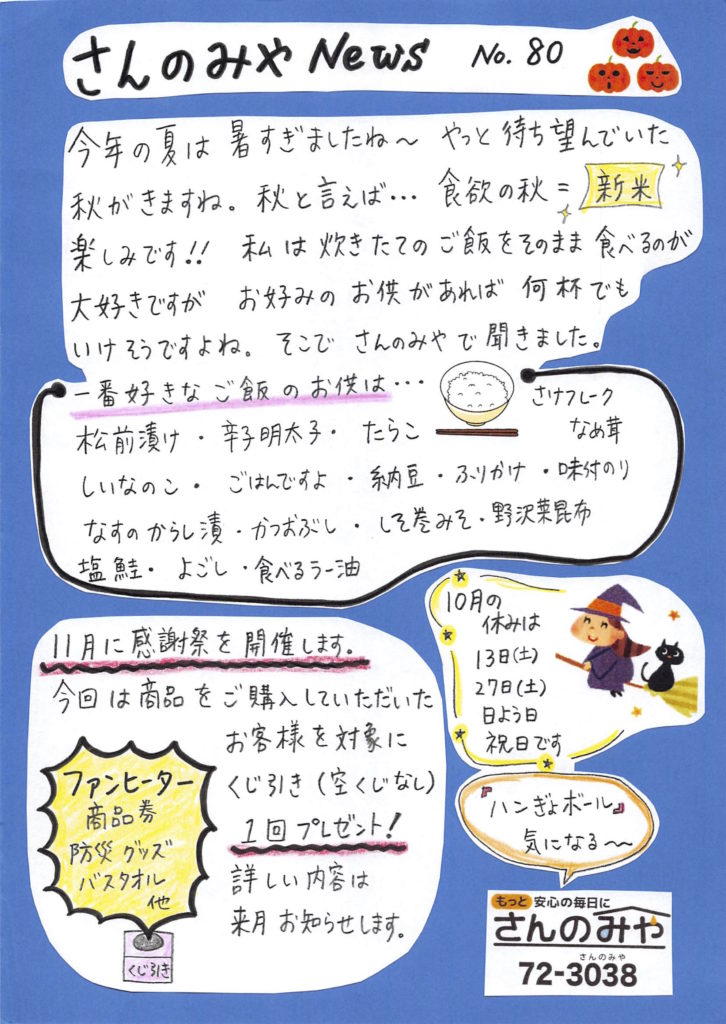 さんのみや News No. 80
今年の夏は 暑すぎましたね〜 やっと待ち望んでいた
秋がきますね。秋と言えば… 食欲の秋 = 新米
楽しみです!! 私は炊きたてのご飯をそのまま食べるのが
大好きですが お好みのお供があれば 何杯でも
いけそうですよね。そこで さんのみやで聞きました。
一番好きなご飯のお供は…
さけフレーク
なめ茸
松前漬け・辛子明太子・たらこ
しいなのこ・ごはんですよ・納豆・ふりかけ・味付のり
なすのからし漬・かつおぶし・しそ巻みそ・野沢菜昆布
塩鮭・よごし・食べるラー油
10月の
休みは
13日(土)
27日(土)
日よう日
祝日です
11月に感謝祭を開催します。
今回は商品をご購入していただいた
お客様を対象に
くじ引き(空くじなし)
1回プレゼント!
詳しい内容は
来月お知らせします。
ファンヒーター
商品券
防災グッズ
バスタオル
他
くじ引き
『ハンぎょボール』
気になる〜〜
もっと 安心の毎日に
さんのみや
さんのみや
72-3038